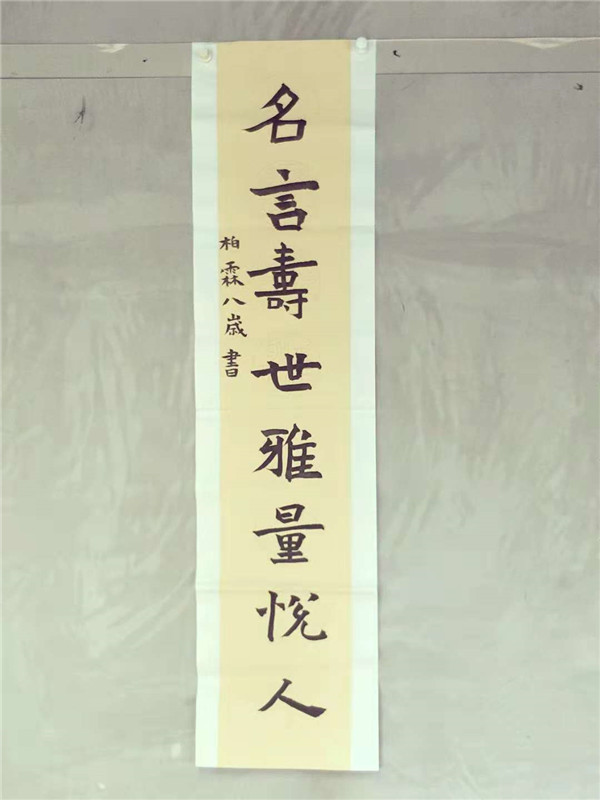 名言壽世雅量悦人
柏霖八歲書